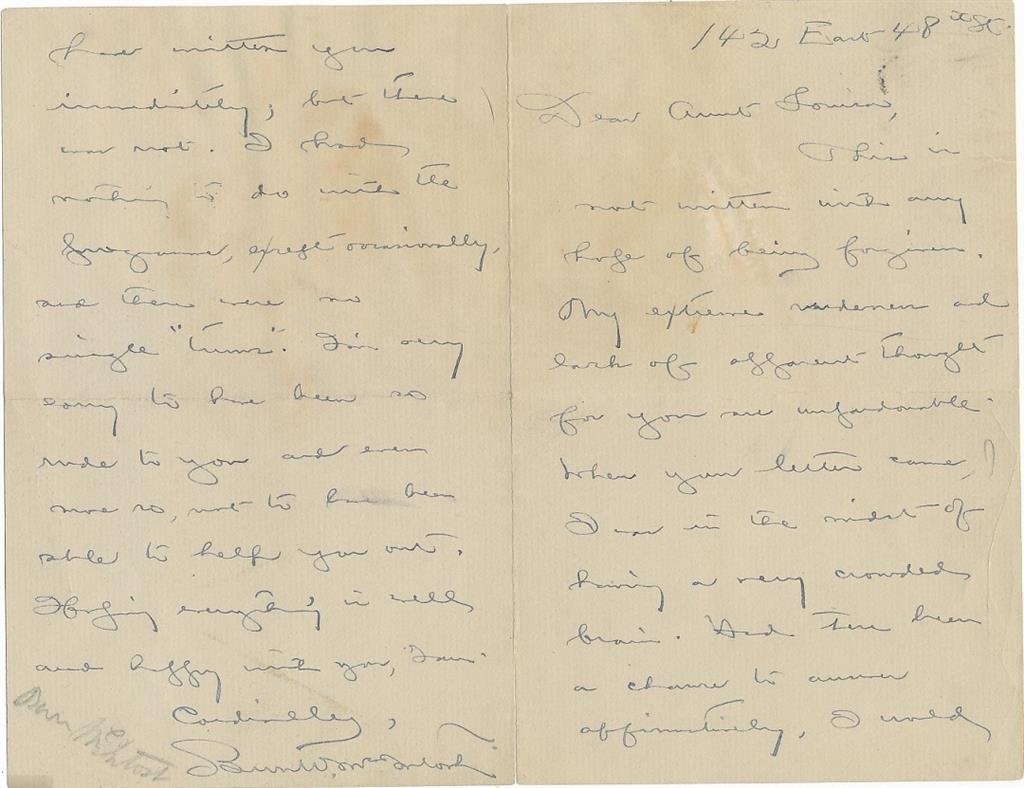 142 East 48th St.
Dear Aunt Louisa,
This is
not written with any
hope of being forgiven.
My extreme rudeness and
lack of apparent thought
for you are unpardonable.
When your letter came,
I was in the midst of
having a very crowded
brain. Had there been
a chance to answer
affirmatively, I would
have written you
immediately; but there
was not. I had
nothing to do with the
programme, except occasionally,
and there were no
single "turns". I'm very
sorry to have been so
rude to you and even
more so, not to have been
able to help you out.
Hoping everything is well
and happy with you, I am
Cordially,
Burr W. McIntosh
Burr McIntosh